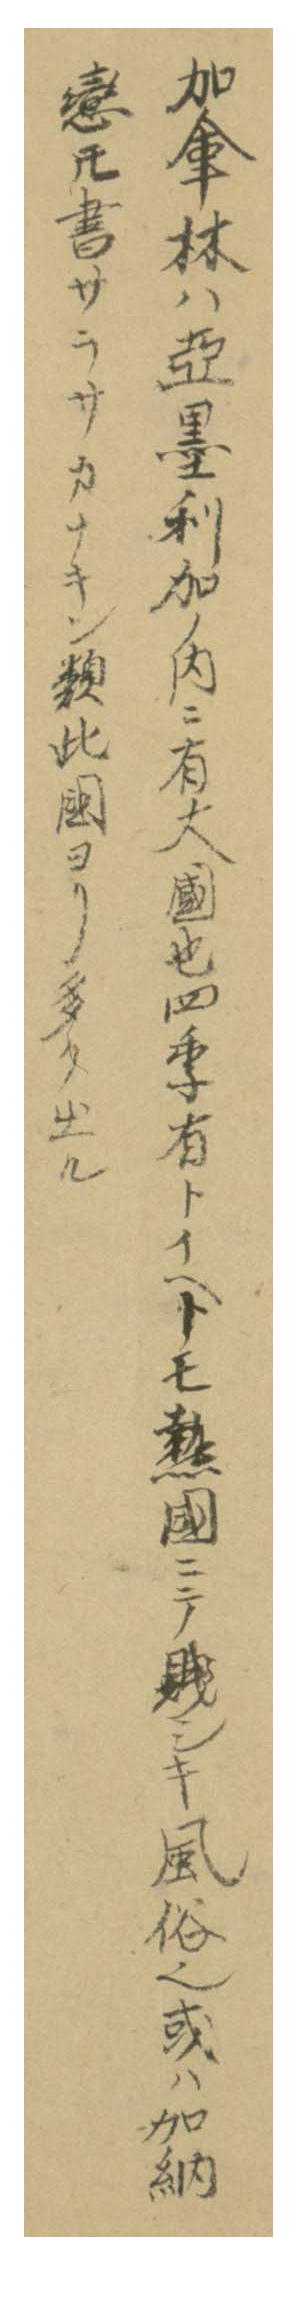 加拿林ハ亞墨利加ノ内ニ有大國也四季有トイヘトモ熱國ニテ賎シキ風俗也或ハ加納
恋凡書サラサカナキン類此國ヨリ多ク出ル